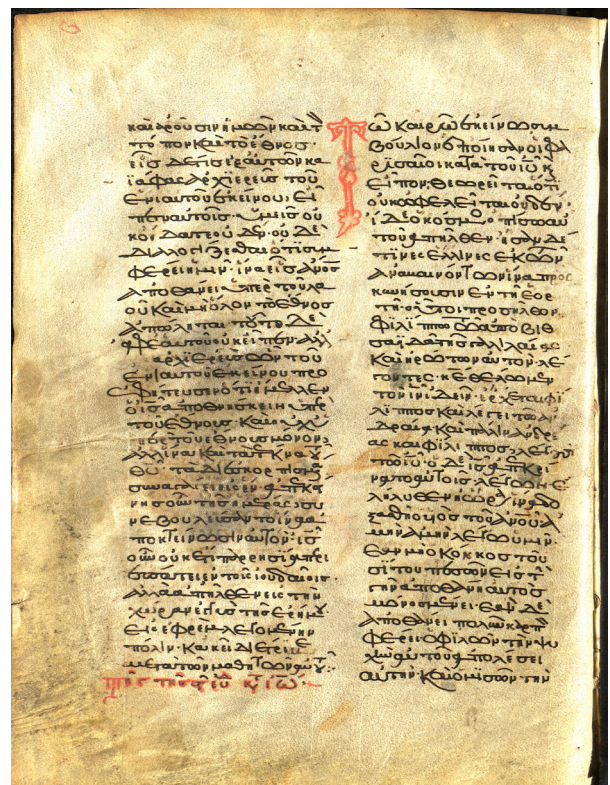 καὶ ἀροῦσιν ἡμῶν καὶ τὸ
τόπον καὶ τὸ ἔθνος·
εἷς δέ τις ἐξ αὐτῶν κα
ϊάφας ἀρχιερεὺς τοῦ
ἐνιαυτοῦ ἐκείνου, εἶ
πεν αὐτοῖς· ὑμεῖς οὐ
κ οἴδατε οὐδέν· οὐδὲ
διαλογίζεσθαι ὅτι συμ
φέρει ἡμῖν· ἵνα εἷς ἄνος
ἀποθάνει ὑπὲρ τοῦ λα
οῦ καὶ μὴ ὅλον τὸ ἔθνος
ἀπόληται· τοῦτο δὲ
ἀφ ἑαυτοῦ οὐκ εἶπεν· ἀλλ
ἀρχιερεὺς ὢν τοῦ
ἐνιαυτοῦ ἐκείνου προ
εφήτευσεν ὅτι ἔμελλεν
ὁ ις ἀποθνήσκειν ὑπὲρ
τοῦ ἔθνους· Καὶ οὐχ ὑ
πὲρ τοῦ ἔθνους μόνον,
ἀλλ ἵνα καὶ τὰ τέκνα τοῦ
θυ· τὰ διεσκορπισμένα
συναγάγει εἰς ἕν· ἀπ ἐκεί
νης οὖν τῆς ἡμέρας· συ
νεβουλεύσαντο ἵνα
ἀποκτείνωσιν αὐτόν· ὁ ις
οὖν οὐκέτι παρρησίᾳ περι
επάτει ἐν τοῖς ἰουδαίοις·
ἀλλὰ ἀπῆλθεν εἰς τὴν
χώραν ἐγγὺς τῆς ἐρήμου
εἰς ἐφρὲμ λεγομένην
πόλιν· Κακεῖ διέτριβε
μετὰ τῶν μαθητῶν αὐτοῦ·
Τῷ καιρῷ ἐκείνῳ συμ
βούλιον ἐποίησαν οἱ φα
ρισαῖοι κατὰ τοῦ ιυ κ
εἶπον· θεωρεῖται ὅτι
οὐκ ὠφελεῖται οὐδέν·
ἴδε ὁ κόσμος ὀπίσω αὐ
τοῦ ἀπῆλθεν· ἦσαν δέ
τινες ἕλλινες ἐκ τῶν
ἀναβαινόντων ἵνα προς
κυνήσουσιν ἐν τῇ ἑορ
τῇ· οὗτοι προσῆλθον
φιλίππω τῶ ἀπὸ βιθ
σαϊδὰ τῆς γαλιλαίας
Καὶ ἠρώτων αὐτὸν· λέ
γοντες· κε θέλομεν
τὸν ιν ἰδεῖν· ἔρχεται φί
λιππος Καὶ λέγει τῶ ἀν
δρέα· Καὶ πάλιν ἀνδρέ
ας καὶ φίλιππος, λέγουσι
τῶ ιυ· ὁ δὲ ις ἀπεκρί
νατο αὐτοῖς λέγων· ἐ
λήλυθεν ἡ ὥρα ἵνα δο
ξασθῇ ὁ υἱὸς τοῦ ἀνου ἀ
μὴν ἀμὴν λέγω ὑμῖν·
ἐὰν μὴ ὁ κόκκος τοῦ
σίτου πεσὼν εἰς τὴ
γῆν ἀποθάνῃ αὐτὸς
μόνος μένει· ἐὰν δὲ
ἀποθάνει πολὺν καρπὸ
φέρει· ὁ φιλῶν τὴν ψυ
χὴν αὐτοῦ ἀπολέσει
αὐτήν· Καὶ ὁ μισῶν τὴν